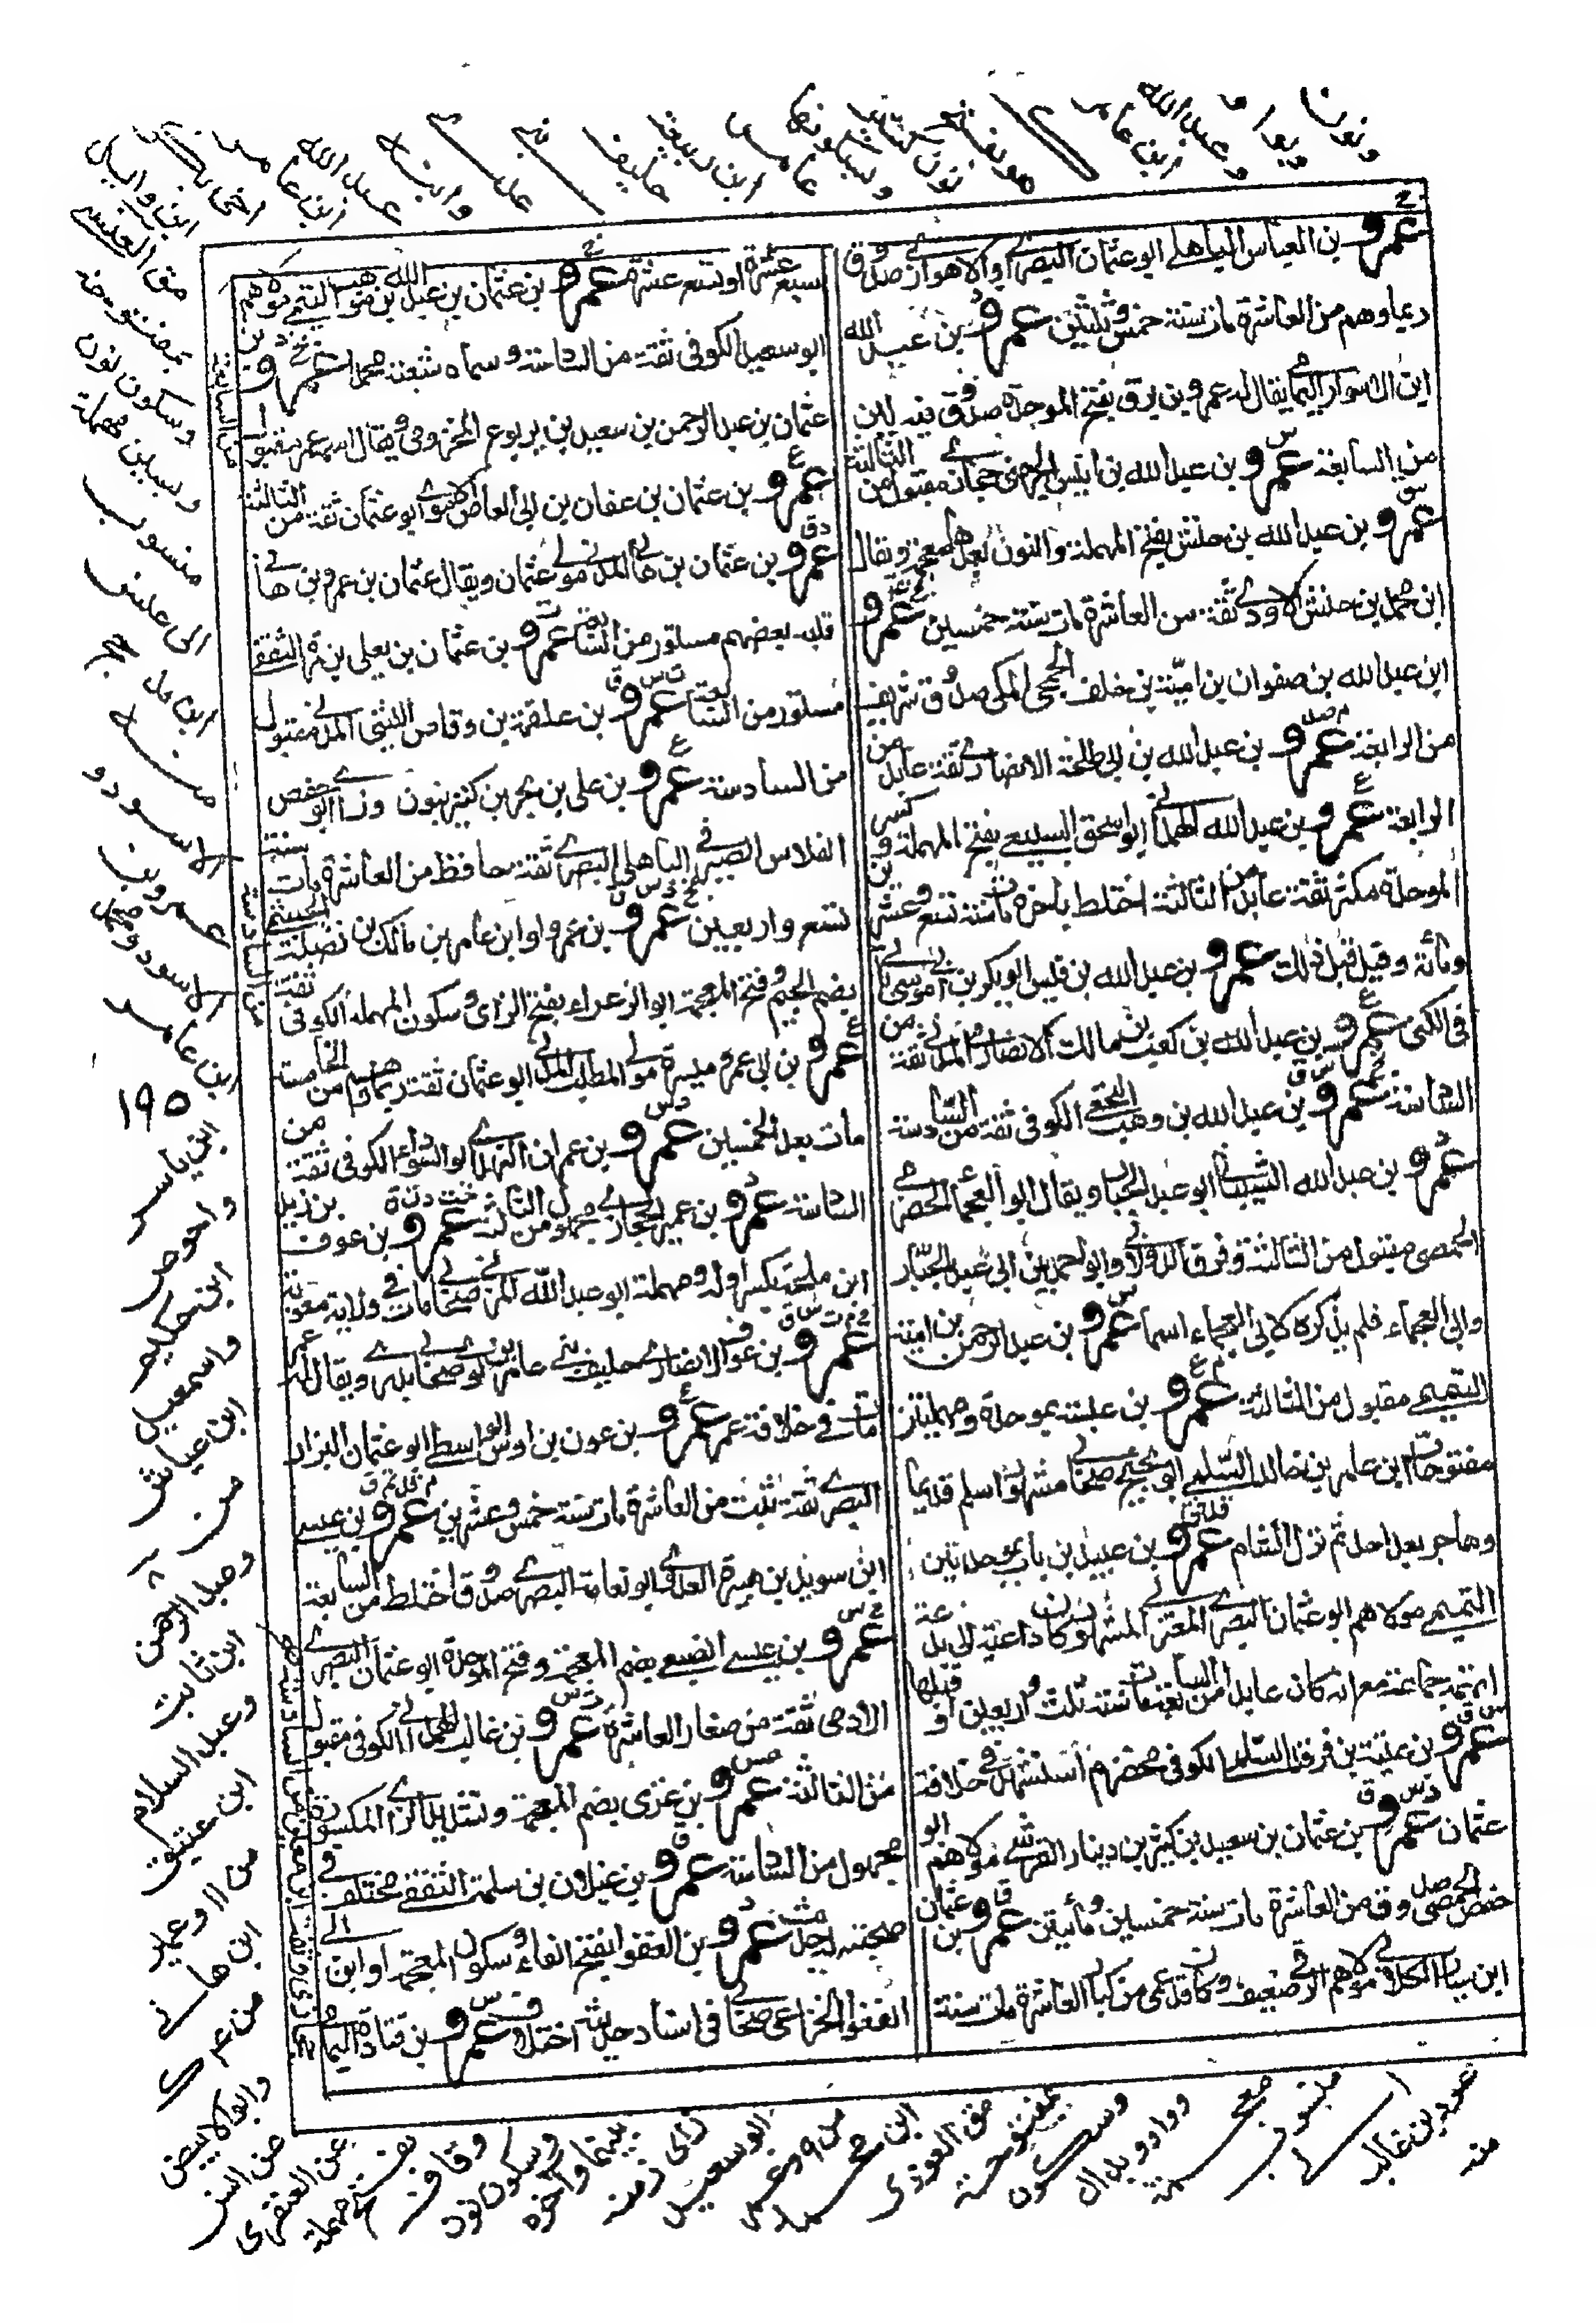 عمرو بن العباس الباهلي ابو عثمان البصري او الاهوازي صدوق
ربما وهم من العاشرة مات سنة خمس وثلثين عمرو بن عبد الله
ابن الاسوار اليماني يقال له عمرو بن برق بفتح الموحدة صدوق فيه لين
من السابعة عمرو بن عبد الله بن انيس الجهني حجازي مقبول من الثالثة
عمرو بن عبد الله بن حنش بفتح المهملة والنون بعدها معجمة ويقال
ابن محمد بن حنش الاودي ثقة من العاشرة مات سنة خمسين عمرو
ابن عبد الله بن صفوان بن امية بن خلف الجمحي المكي صدوق شريف
من الرابعة عمرو بن عبد الله بن ابي طلحة الانصاري ثقة عابد من
الرابعة عمرو بن عبد الله الهمداني ابو اسحق السبيعي بفتح المهملة وكسر
الموحدة مكثر ثقة عابد من الثالثة اختلط باخرة مات سنة تسع وعشرين
ومائة وقيل قبل ذلك عمرو بن عبد الله بن قيس ابو بكر بن ابي موسى ياتي
في الكنى عمرو بن عبد الله بن كعب بن مالك الانصاري المدني ثقة من
السادسة عمرو بن عبد الله بن وهب النخعي الكوفي ثقة من السادسة
عمرو بن عبد الله الشيباني ابو عبد الجبار ويقال ابو العجماء الحضرمي
الحمصي مقبول من الثالثة وفرق الدولابي وابو احمد بين ابي عبد الجبار
وابي العجماء فلم يذكره لابي العجماء اسما عمرو بن عبد الرحمن بن امية
التميمي مقبول من الثالثة عمرو بن عبسة بموحدة ومهملتين
مفتوحات ابن عامر بن خالد السلمي ابو نجيح صحابي مشهور اسلم قديما
وهاجر بعد احد ثم نزل الشام عمرو بن عبيد بن باب بموحدتين
التميمي مولاهم ابو عثمان البصري المعتزلي المشهور كان داعية الى بدعة
اتهمه جماعة مع انه كان عابدا من السابعة مات سنة ثلث واربعين او قبلها
عمرو بن عتبة بن فرقد السلمي الكوفي مخضرم استشهد في خلافة
عثمان عمرو بن عثمان بن سعيد بن كثير بن دينار القرشي مولاهم ابو
حفص الحمصي صدوق من العاشرة مات سنة خمسين ومأتين عمرو بن عثمان
ابن سيار الكلابي مولاهم الرقي ضعيف وكان قد عمي من كبار العاشرة مات سنة
سبع عشرة او تسع عشرة عمرو بن عثمان بن عبد الله بن موهب التيمي مولاهم
ابو سعيد الكوفي ثقة من السادسة وسماه شعبة محمدا عمرو بن
عثمان بن عبد الرحمن بن سعيد بن يربوع المخزومي ويقال اسمه عمر مقبول
من السابعة
عمرو بن عثمان بن عفان بن ابي العاص الاموي ابو عثمان ثقة من الثالثة
عمرو بن عثمان بن هاني المدني مولى عثمان ويقال عثمان بن عمرو بن هاني
قلبه بعضهم مستور من السابعة عمرو بن عثمان بن يعلى بن مرة الثقفي
مستور من السابعة عمرو بن علقمة بن وقاص الليثي المدني مقبول
من السادسة عمرو بن علي بن بحر بن كنيز بنون وزاء ابو حفص
الفلاس الصيرفي الباهلي البصري ثقة حافظ من العاشرة مات سنة
تسع واربعين عمرو بن عمرو او ابن عامر بن مالك بن نضلة الجشمي
بضم الجيم وفتح المعجمة ابو الزعراء بفتح الزاي وسكون المهملة الكوفي ثقة
من السادسة
عمرو بن ابي عمرو ميسرة مولى المطلب المدني ابو عثمان ثقة ربما وهم من الخامسة
مات بعد الخمسين عمرو بن عمران النهدي ابو السوداء الكوفي ثقة من
السادسة عمرو بن عمير الحجازي مجهول من الثالثة عمرو بن عوف بن زيد
ابن ملحة بكسر اوله ومهملة ابو عبد الله المزني صحابي مات في ولاية معوية
عمرو بن عوف الانصاري حليف بني عامر بن لوي صحابي بدري ويقال له عمير
مات في خلافة عمر عمرو بن عون بن اوس الواسطي ابو عثمان البزار
البصري ثقة ثبت من العاشرة مات سنة خمس وعشرين عمرو بن عيسى
ابن سويد بن هبيرة العدوي ابو نعامة البصري صدوق اختلط من السابعة
عمرو بن عيسى الضبعي بضم المعجمة وفتح الموحدة ابو عثمان البصري
الادمي ثقة من صغار العاشرة عمرو بن غالب الهمداني الكوفي مقبول
من الثالثة عمرو بن غزي بضم المعجمة وتشديد الزاء المكسورة
مجهول من السادسة عمرو بن غيلان بن سلمة الثقفي مختلف في
صحبته له حديث عمرو بن الفغواء بفتح الفاء وسكون المعجمة او ابن ابي
الفغواء الخزاعي صحابي في اسناد حديثه اختلاف عمرو بن قتادة اليمامي
ابن عبد الله
ابن عامر
وابنه
عبد الله
ابن عامر
مق العنسي
بمفتوحة
وسكون نون
وبسين مهملة
منسوب
الى عنس
ابن مذحج
منه
الاسود و
عمرو بن
الاسود ومحمد
ابن عامر
١٩٥
ابن ياسر
واحوص
ابن حكيم
واسمعيل
ابن عياش
من
وعبد الرحمن
ابن ثابت
وعبد السلام
ابن عتيق
من ١١ وعمير
ابن هاني
من ٤
وابو الابيض
عن انس
عن العنقزي
بفتح مهملة
وقاف
وسكون نون
بينهما وآخره
زاي منه
ابو سعيد
من ٩ وعمرو
ابن محمد
مق العوذي
بمفتوحة
وسكون
واو وبذال
معجمة
منسوب
عمرو بن غالب
منه